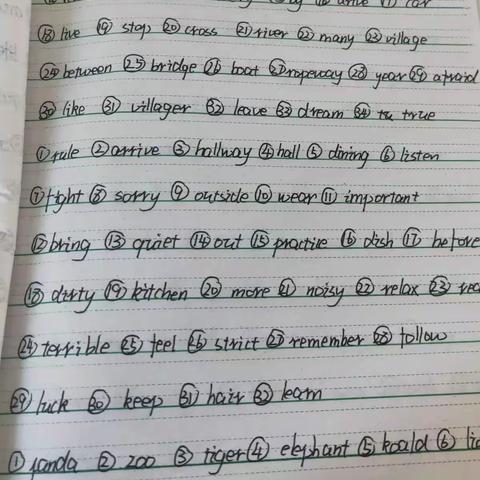 ⑱ live ⑲ stop ⑳ cross ㉑ river ㉒ many ㉓ village
㉔ between ㉕ bridge ㉖ boat ㉗ ropeway ㉘ year ㉙ afraid
㉚ like ㉛ villager ㉜ leave ㉝ dream ㉞ true
① rule ② arrive ③ hallway ④ hall ⑤ dining ⑥ listen
⑦ fight ⑧ sorry ⑨ outside ⑩ wear ⑪ important
⑫ bring ⑬ quiet ⑭ out ⑮ practice ⑯ dish ⑰ before
⑱ dirty ⑲ kitchen ⑳ more ㉑ noisy ㉒ relax ㉓
㉔ terrible ㉕ feel ㉖ strict ㉗ remember ㉘ follow
㉙ luck ㉚ keep ㉛ hair ㉜ learn
① panda ② zoo ③ tiger ④ elephant ⑤ koala ⑥